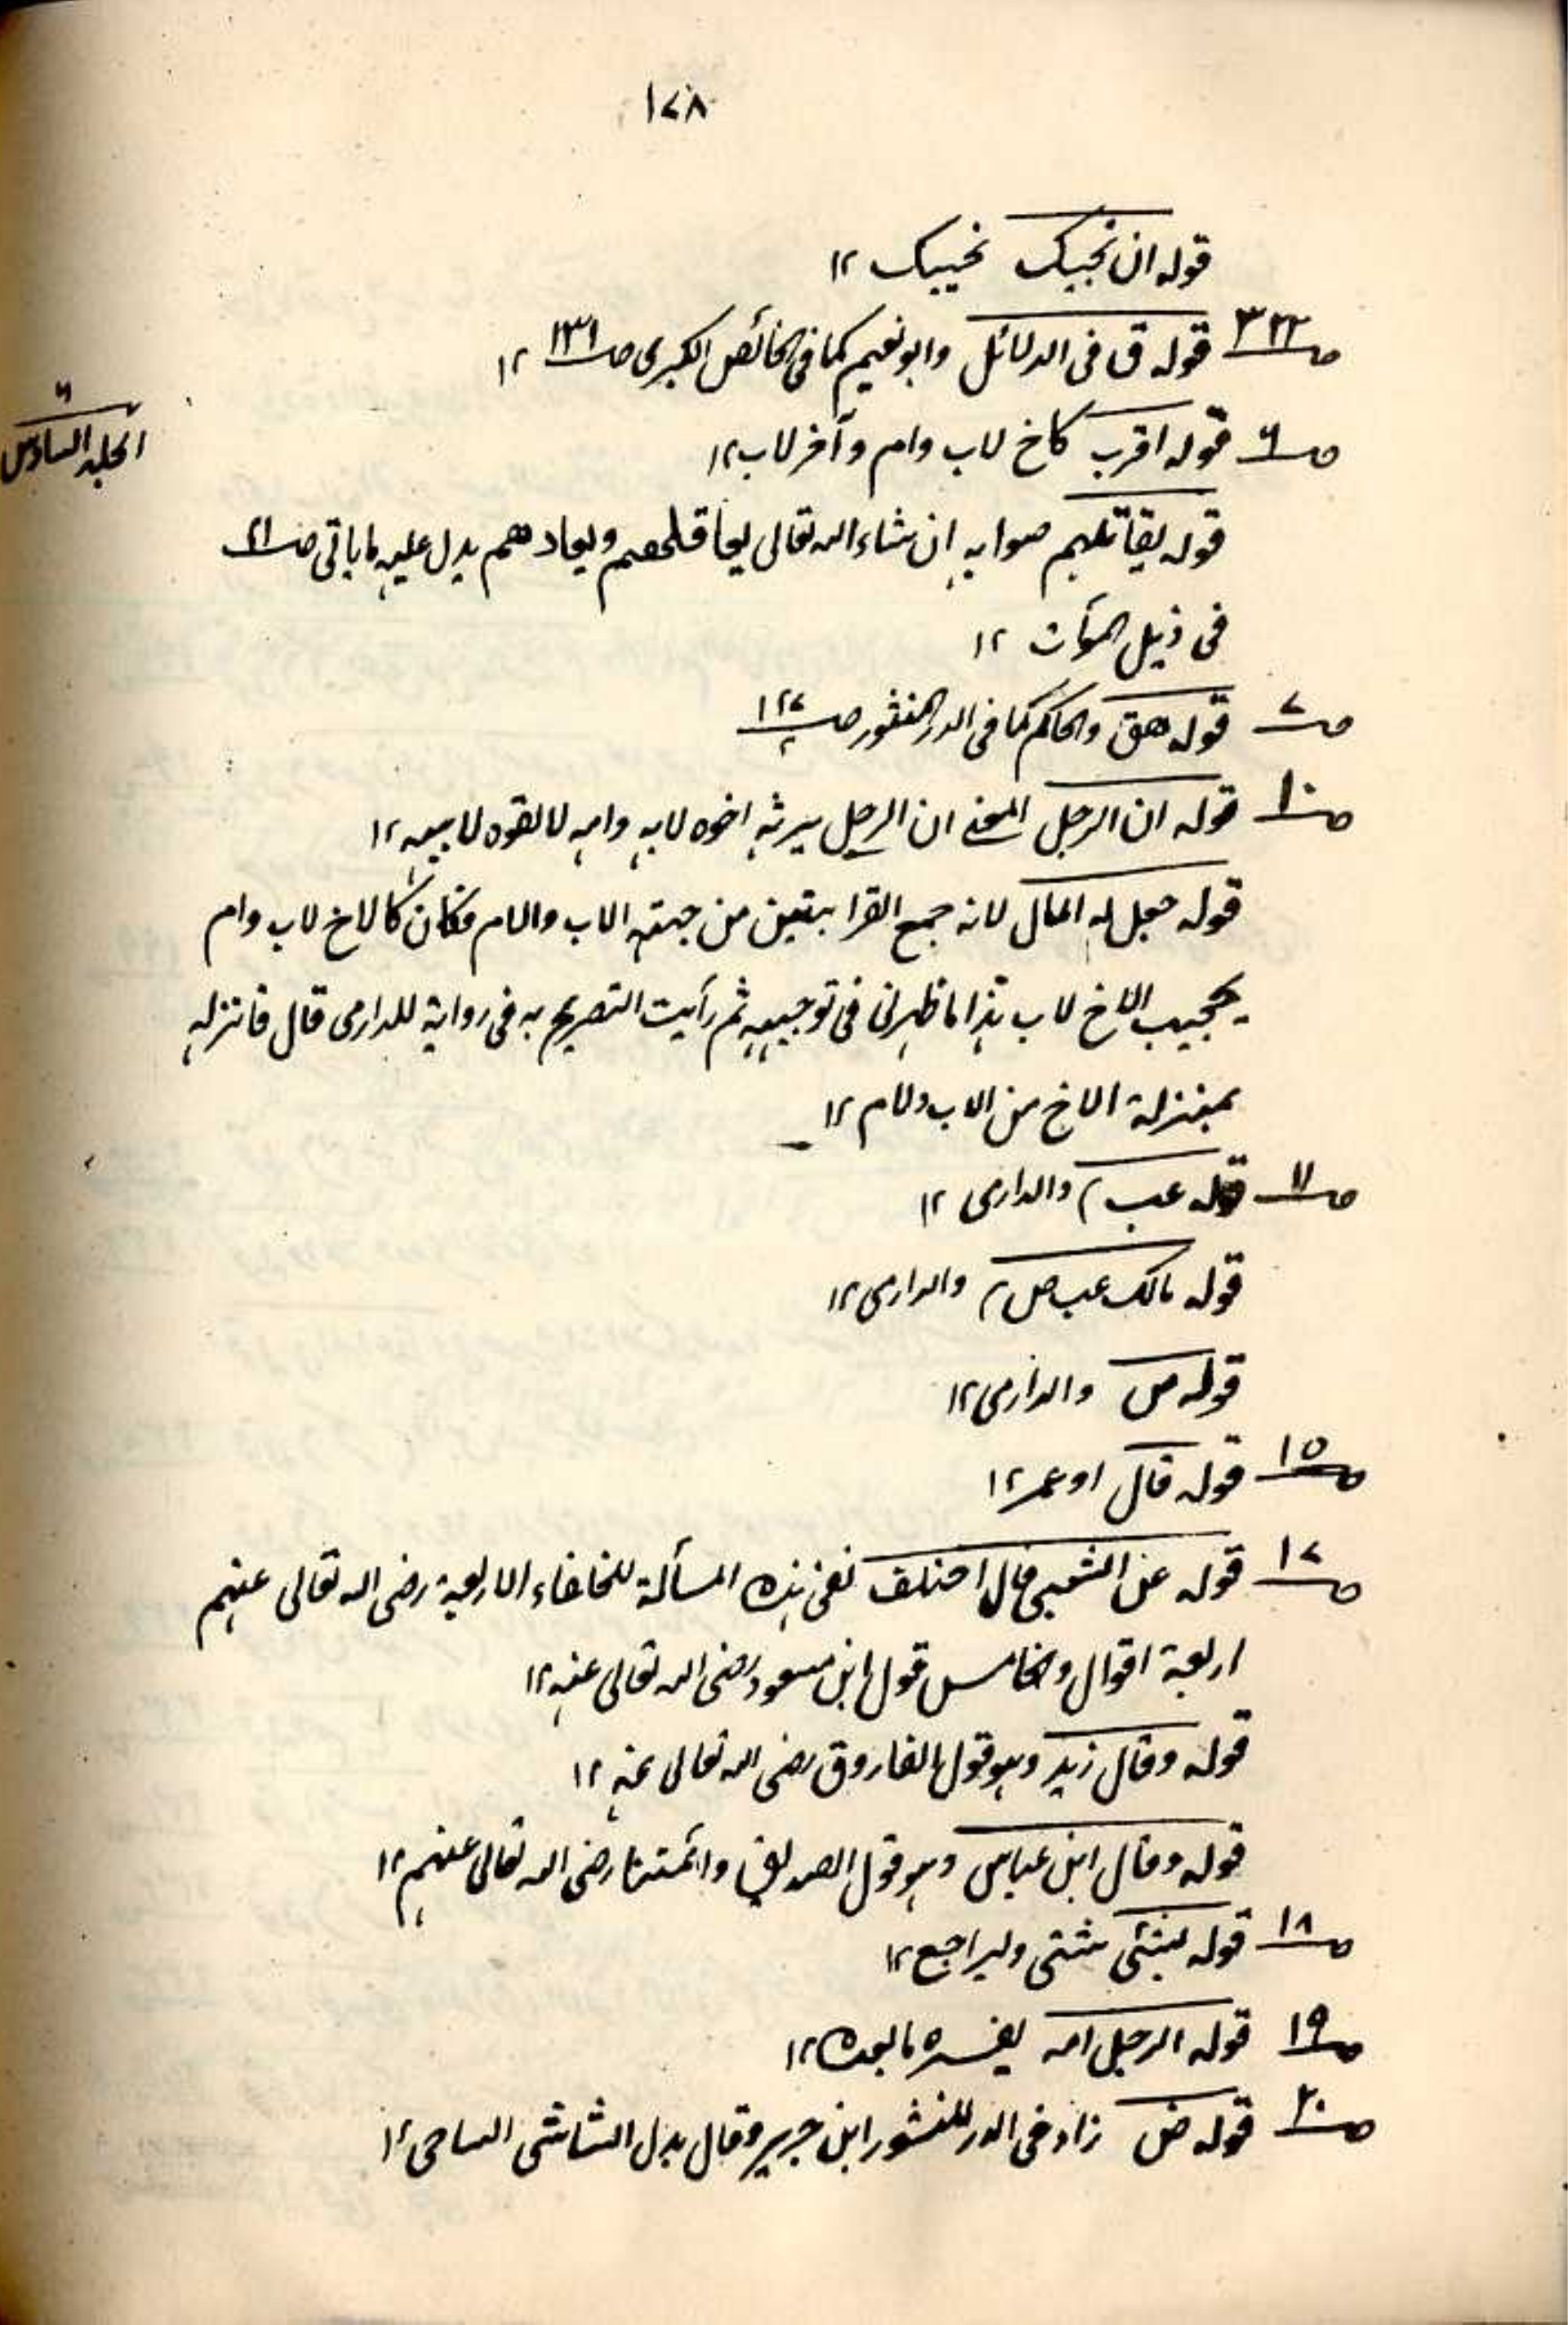 ۱۷۸
قوله ان نجيبك نحييك ۱۲
ص۳۲۲ قوله ق فى الدلائل وابو نعيم كما فى الخصائص الكبرى ص۱۳۱ ۱۲
الجلد السادس
ص۶ قوله اقرب كاخ لاب وام وآخر لاب ۱۲
قوله يقاتلهم صوابه ان شاء الله تعالى يعاقلهم ويعادهم يدل عليه ما ياتى ص۲۱
فى ذيل ۱۲
ص۷ قوله هق والحاكم كما فى الدر المنثور ص۱۲۷/۲
ص۱۰ قوله ان الرجل المعنى ان الرجل يرثه اخوه لابيه وامه لا اخوه لابيه ۱۲
قوله جعل له المال لانه جمع القرابتين من جهته الاب والام فكان كالاخ لاب وام
يحجب الاخ لاب هذا ما ظهر لى فى توجيهه ثم رأيت التصريح به فى رواية للدارمى قال فانزله
بمنزلة الاخ من الاب والام ۱۲
ص۱۱ قوله عب والدارمى ۱۲
قوله مالك عب ص والدارمى ۱۲
قوله ص والدارمى ۱۲
ص۱۵ قوله قال او عمر ۱۲
ص۱۷ قوله عن الشعبى قال اختلف ففى هذه المسألة للخلفاء الاربعة رضى الله تعالى عنهم
اربعة اقوال والخامس قول ابن مسعود رضى الله تعالى عنه ۱۲
قوله وقال زيد وهو قول الفاروق رضى الله تعالى عنه ۱۲
قوله وقال ابن عباس وهو قول الصديق وائمتنا رضى الله تعالى عنهم ۱۲
ص۱۸ قوله شتى وليراجع ۱۲
ص۱۹ قوله الرجل امه يفسره ما بعده ۱۲
ص۲۰ قوله ض زاد فى الدر المنثور ابن جرير وقال بدل الشاشى الساجى ۱۲